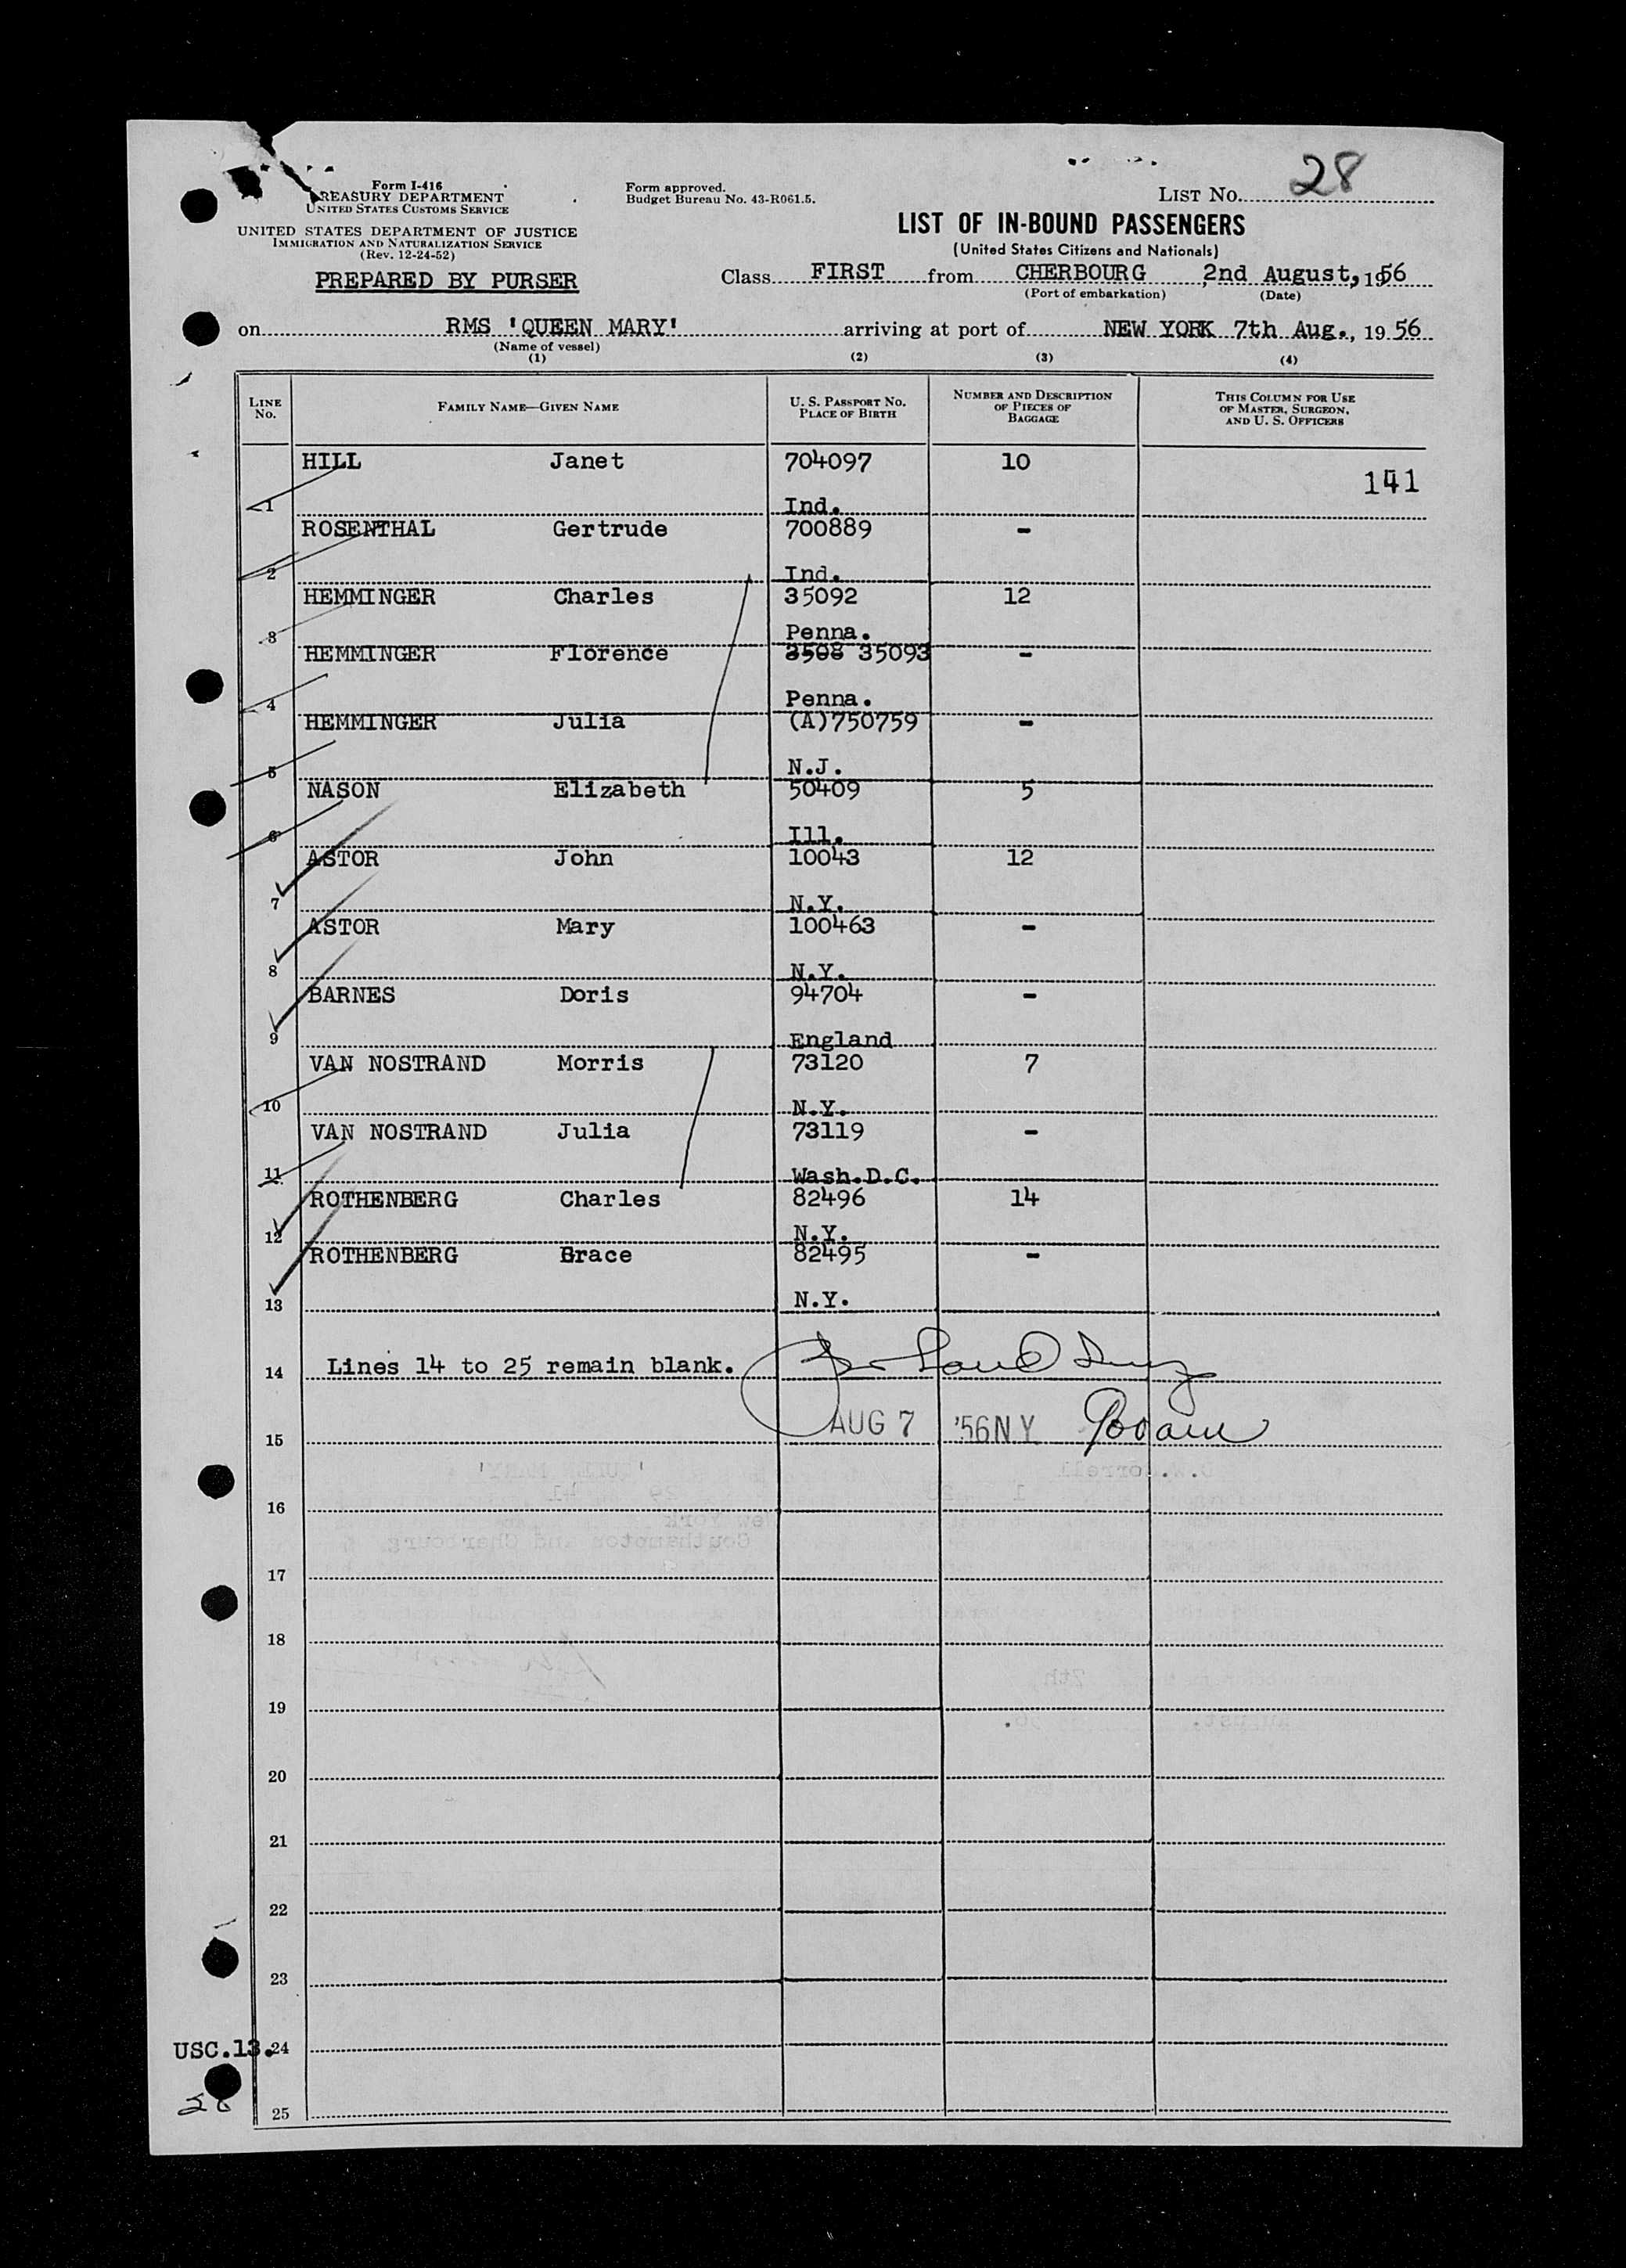 28
LIST No.
Form I-416
TREASURY DEPARTMENT
UNITED STATES CUSTOMS SERVICE
UNITED STATES DEPARTMENT OF JUSTICE
IMMIGRATION AND NATURALIZATION SERVICE
(Rev. 12-24-52)
PREPARED BY PURSER
Form approved.
Budget Bureau No. 43-R061.5.
LIST OF IN-BOUND PASSENGERS
(United States Citizens and Nationals)
Class FIRST from CHERBOURG, 2nd August, 1956
(Port of embarkation) (Date)
on RMS 'QUEEN MARY' arriving at port of NEW YORK 7th Aug., 1956
(Name of vessel)
(1) (2) (3) (4)
LINE No. FAMILY NAME—GIVEN NAME U. S. PASSPORT No. PLACE OF BIRTH NUMBER AND DESCRIPTION OF PIECES OF BAGGAGE THIS COLUMN FOR USE OF MASTER, SURGEON, AND U. S. OFFICERS
HILL Janet 704097 10
141
1 Ind.
ROSENTHAL Gertrude 700889 -
2 Ind.
HEMMINGER Charles 35092 12
3 Penna.
HEMMINGER Florence 3508 35093 -
4 Penna.
HEMMINGER Julia (A)750759 -
5 N.J.
NASON Elizabeth 50409 5
6 Ill.
ASTOR John 10043 12
7 N.Y.
ASTOR Mary 100463 -
8 N.Y.
BARNES Doris 94704 -
9 England
VAN NOSTRAND Morris 73120 7
10 N.Y.
VAN NOSTRAND Julia 73119 -
11 Wash.D.C.
ROTHENBERG Charles 82496 14
12 N.Y.
ROTHENBERG Grace 82495 -
13 N.Y.
14 Lines 14 to 25 remain blank.
AUG 7 '56 N Y
15
16
17
18
19
20
21
22
23
USC.13. 24
28
25